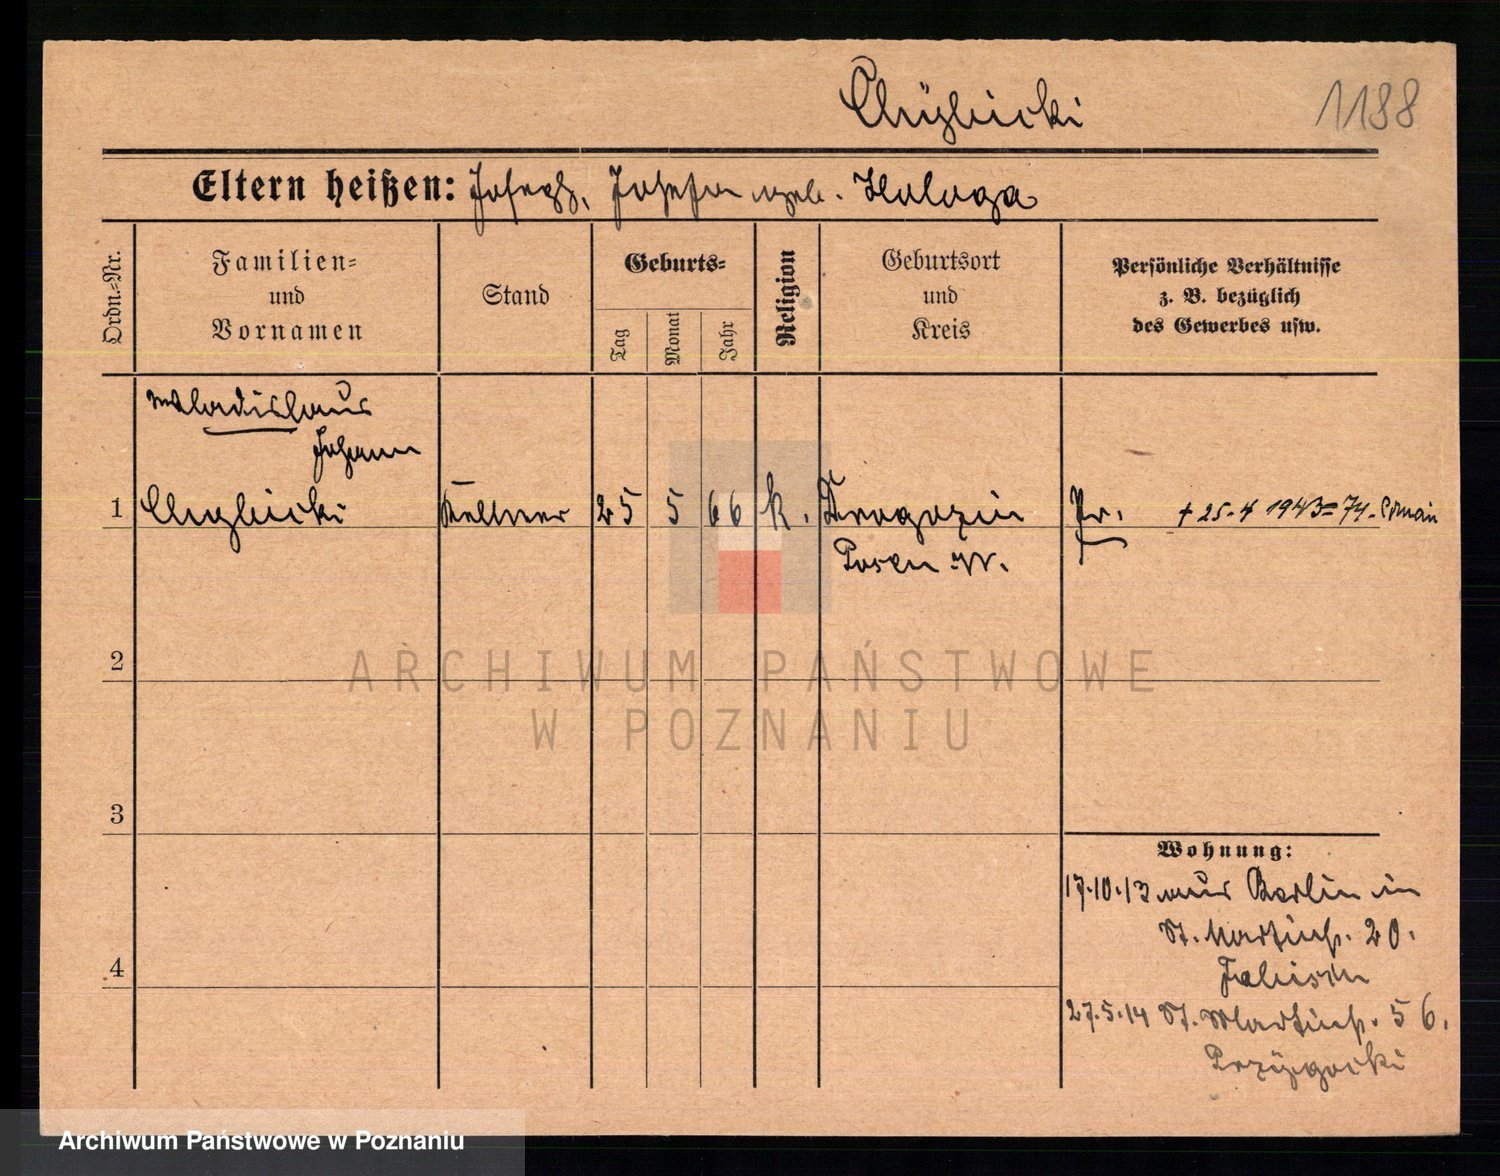 1188
Eltern heißen: Joseph, Josefa geb. Hologa
Ordn.-Nr.
Familien-
und
Vornamen
Stand
Geburts-
Tag
Monat
Jahr
Religion
Geburtsort
und
Kreis
Persönliche Verhältnisse
z. B. bezüglich
des Gewerbes usw.
Wladislaus
Johann
1 Kellner 25 5 66 k. Pr. + 25.4 1943 = 74.
Posen W.
2
3
4
Wohnung:
17.10.13 aus Berlin in
St. Martinstr. 20.
27.5.14 St. Martinstr. 56.
ARCHIWUM PAŃSTWOWE
W POZNANIU
Archiwum Państwowe w Poznaniu